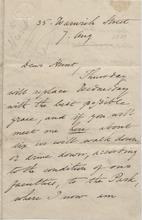 35. Warwick Street
7. Aug
Dear Hunt,
Thursday
will replace Wednesday
with the best possible
grace, and if you will
meet me here about
six we will walk down
or drive down, according
to the condition of our
faculties, to the Park,
where I now am